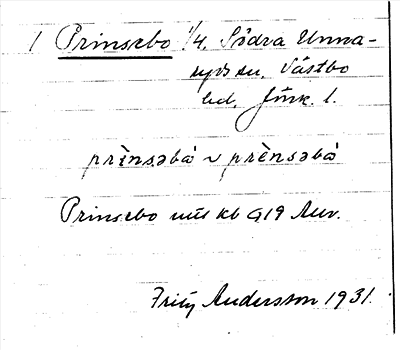 1 Prinsebo 1/4, Södra Unna-
ryds sn, Västbo
hd, Jönk. l.
prìnsəbà ~ prènsəbà
Prinsebo kb G19
Fritz Andersson 1931.